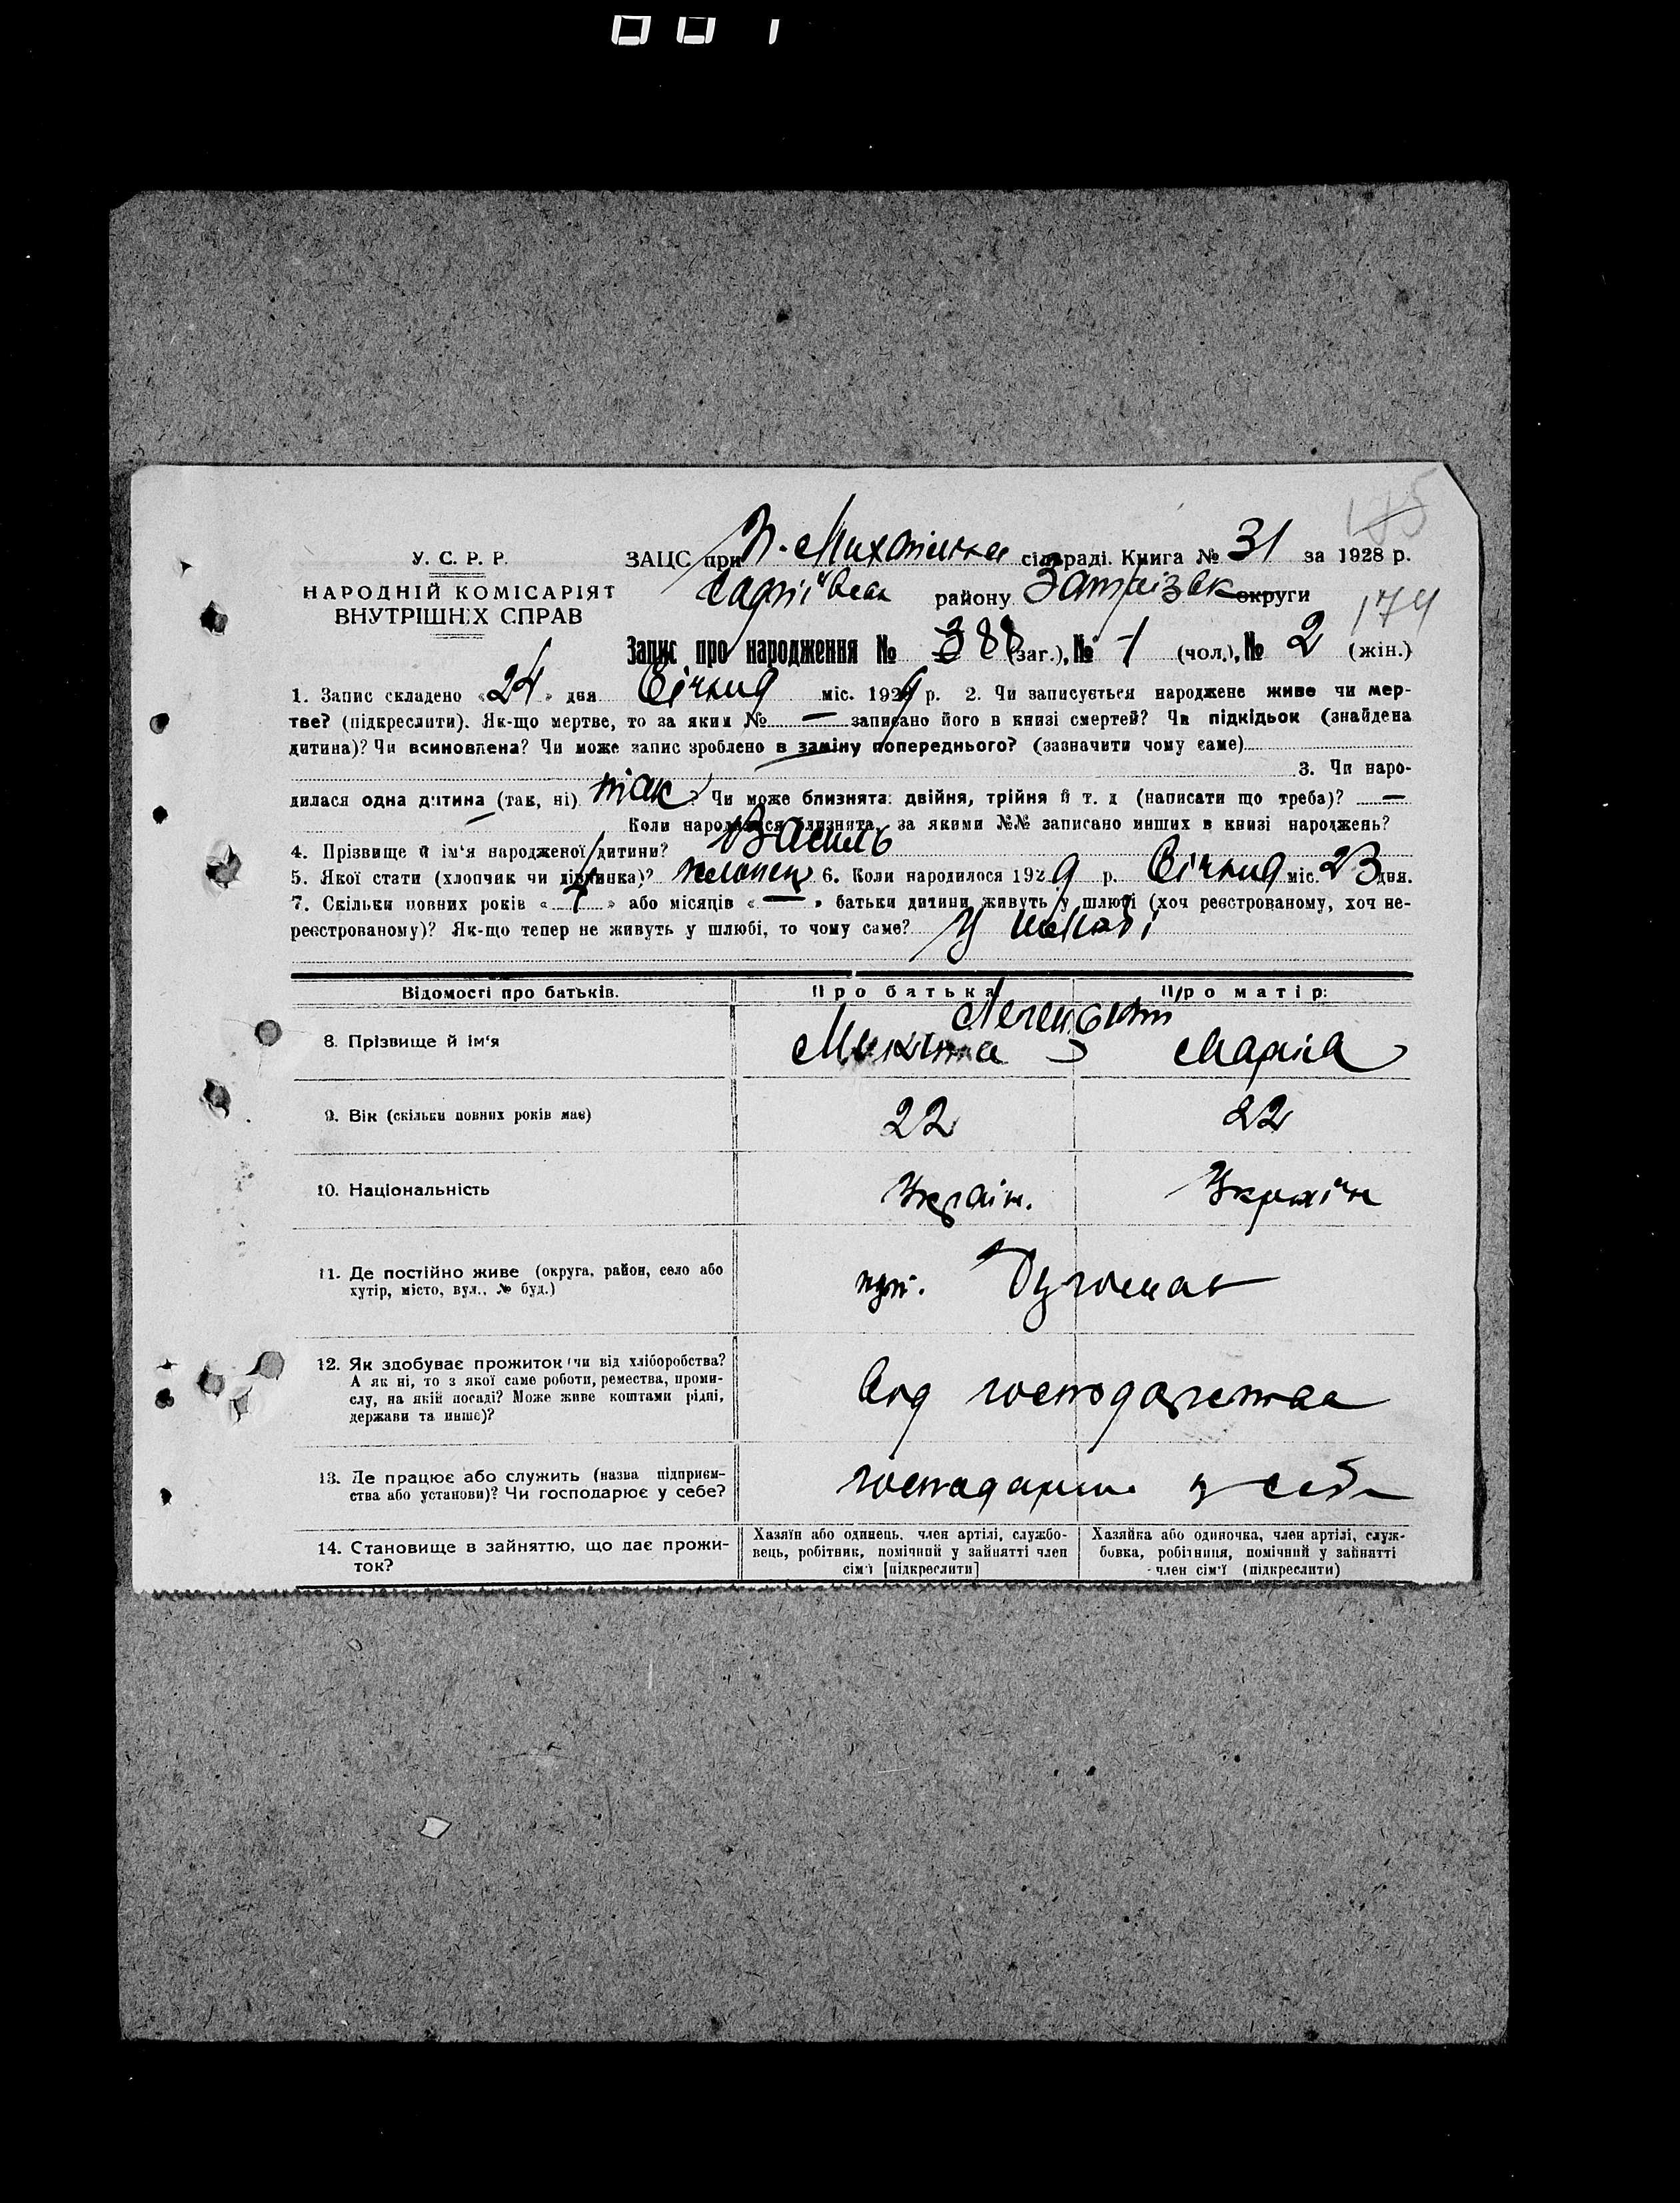 У. С. Р. Р.
НАРОДНІЙ КОМІСАРІЯТ
ВНУТРІШНІХ СПРАВ
ЗАЦС при сільраді. Книга № 31 за 1928 р.
району округи
174
Запис про народження № 388 (заг.), № 1 (чол.), № 2 (жін.)
1. Запис складено «24» дня Січня міс. 1929 р. 2. Чи записується народжене живе чи мер-
тве? (підкреслити). Як-що мертве, то за яким № — записано його в книзі смертей? Чи підкідьок (знайдена
дитина)? Чи всиновлена? Чи може запис зроблено в заміну попереднього? (зазначити чому саме)
3. Чи наро-
дилася одна дитина (так, ні) так? Чи може близнята: двійня, трійня й т. д (написати що треба)? —
Коли народилися близнята, за якими №№ записано инших в книзі народжень?
4. Прізвище й ім'я народженої дитини? Василь
5. Якої стати (хлопчик чи дівчинка)? хлопець 6. Коли народилося 1929 р. Січня міс. 23 дня.
7. Скільки повних років « 1 » або місяців « — » батьки дитини живуть у шлюбі (хоч реєстрованому, хоч не-
реєстрованому)? Як-що тепер не живуть у шлюбі, то чому саме? У шлюбі
Відомості про батьків. Про батька Про матір:
8. Прізвище й ім'я Микита Марія
9. Вік (скільки повних років має) 22 22
10. Національність Україн. Україн
11. Де постійно живе (округа, район, село або
хутір, місто, вул., № буд.)
12. Як здобуває прожиток (чи від хліборобства?
А як ні, то з якої саме роботи, ремества, проми-
слу, на якій посаді? Може живе коштами рідні,
держави та инше)?
Від господарства
13. Де працює або служить (назва підприєм-
ства або установи)? Чи господарює у себе?
у себе
14. Становище в зайняттю, що дає прожи-
ток?
Хазяїн або одинець, член артілі, службо-
вець, робітник, помічний у зайнятті член
сім'ї [підкреслити]
Хазяйка або одиночка, член артілі, служ-
бовка, робітниця, помічний у зайнятті
член сім'ї (підкреслити)